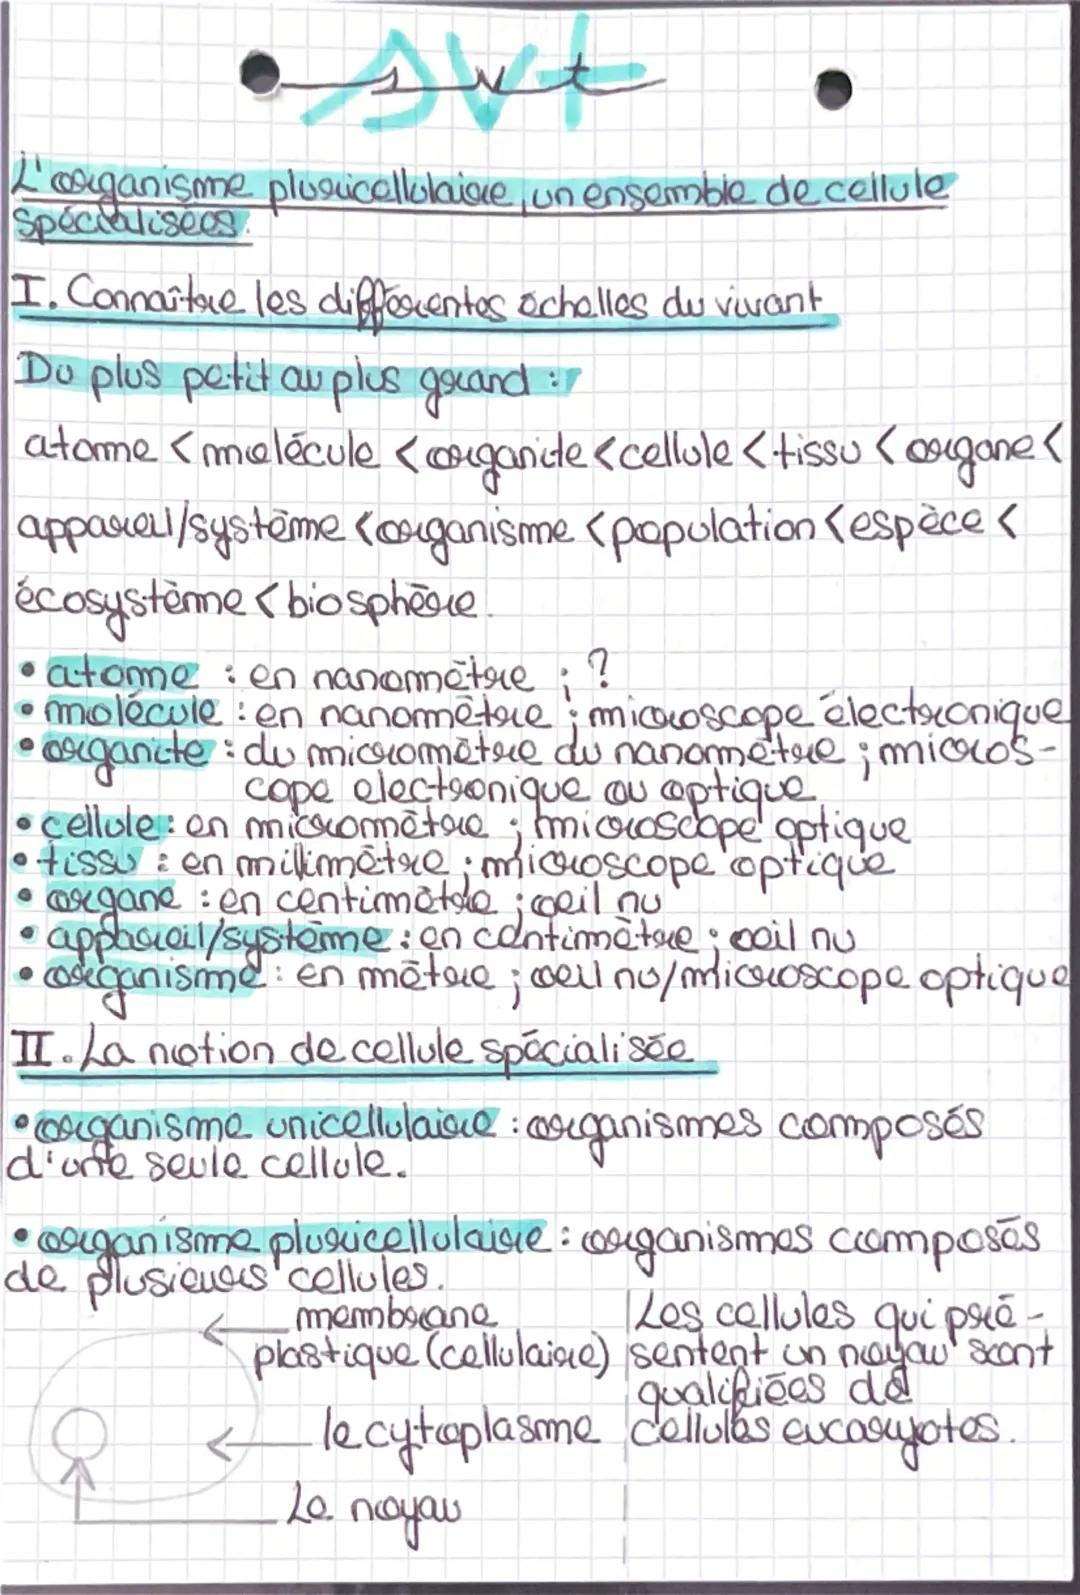 svt
L'organisme pluricellulaire, un ensemble de cellule
spécialisées.
I. Connaître les différentes échelles du vivant
Du plus petit au plus grand :
atome < molécule < organite < cellule < tissu < organe <
appareil/système < organisme < population < espèce <
écosystème < biosphère.
• atome : en nanomètre ; ?
• molécule : en nanomètre ; microscope électronique
• organite : du micromètre du nanomètre ; micros-
cope electronique ou optique
• cellule : en micromètre ; microscope optique
• tissu : en millimètre ; microscope optique
• organe : en centimètre ; oeil nu
• appareil/système : en centimètre ; oeil nu
• organisme : en mètre ; oeil nu/microscope optique
II. La notion de cellule spécialisée
• organisme unicellulaire : organismes composés
d'une seule cellule.
• organisme pluricellulaire : organismes composés
de plusieurs cellules.
membrane
plastique (cellulaire)
le cytoplasme
Le noyau
Les cellules qui pré-
sentent un noyau sont
qualifiées de
cellules eucaryotes.